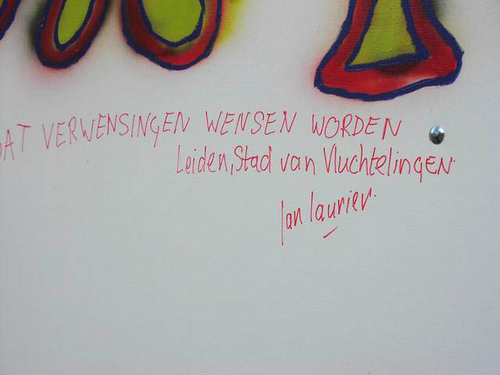 DAT VERWENSINGEN WENSEN WORDEN
Leiden, Stad van Vluchtelingen.
Jan Laurier.